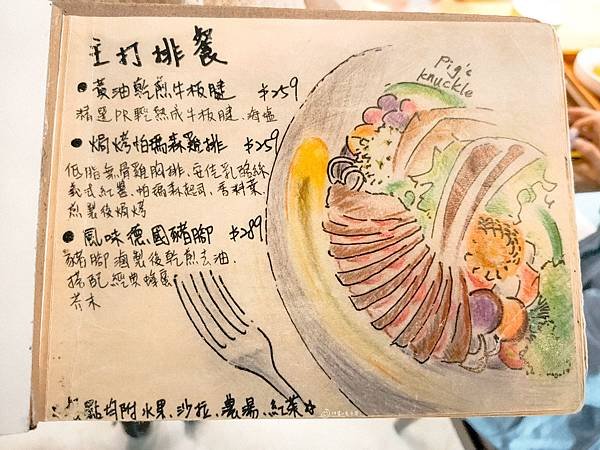 主打排餐
Pig's
knuckle
●黃油乾煎牛板腱 $259
精選PR熟成牛板腱、海鹽
●焗烤帕瑪森雞排 $259
低脂無骨雞胸排、宝佐乳酪絲
義式紅醬、帕瑪森起司、香料葉、
煎製後焗烤
●風味德國豬腳 $289
豬腳滷製後乾煎去油、
搭配經典蜂蜜
芥末
點均附水果、沙拉、濃湯、紅茶☆